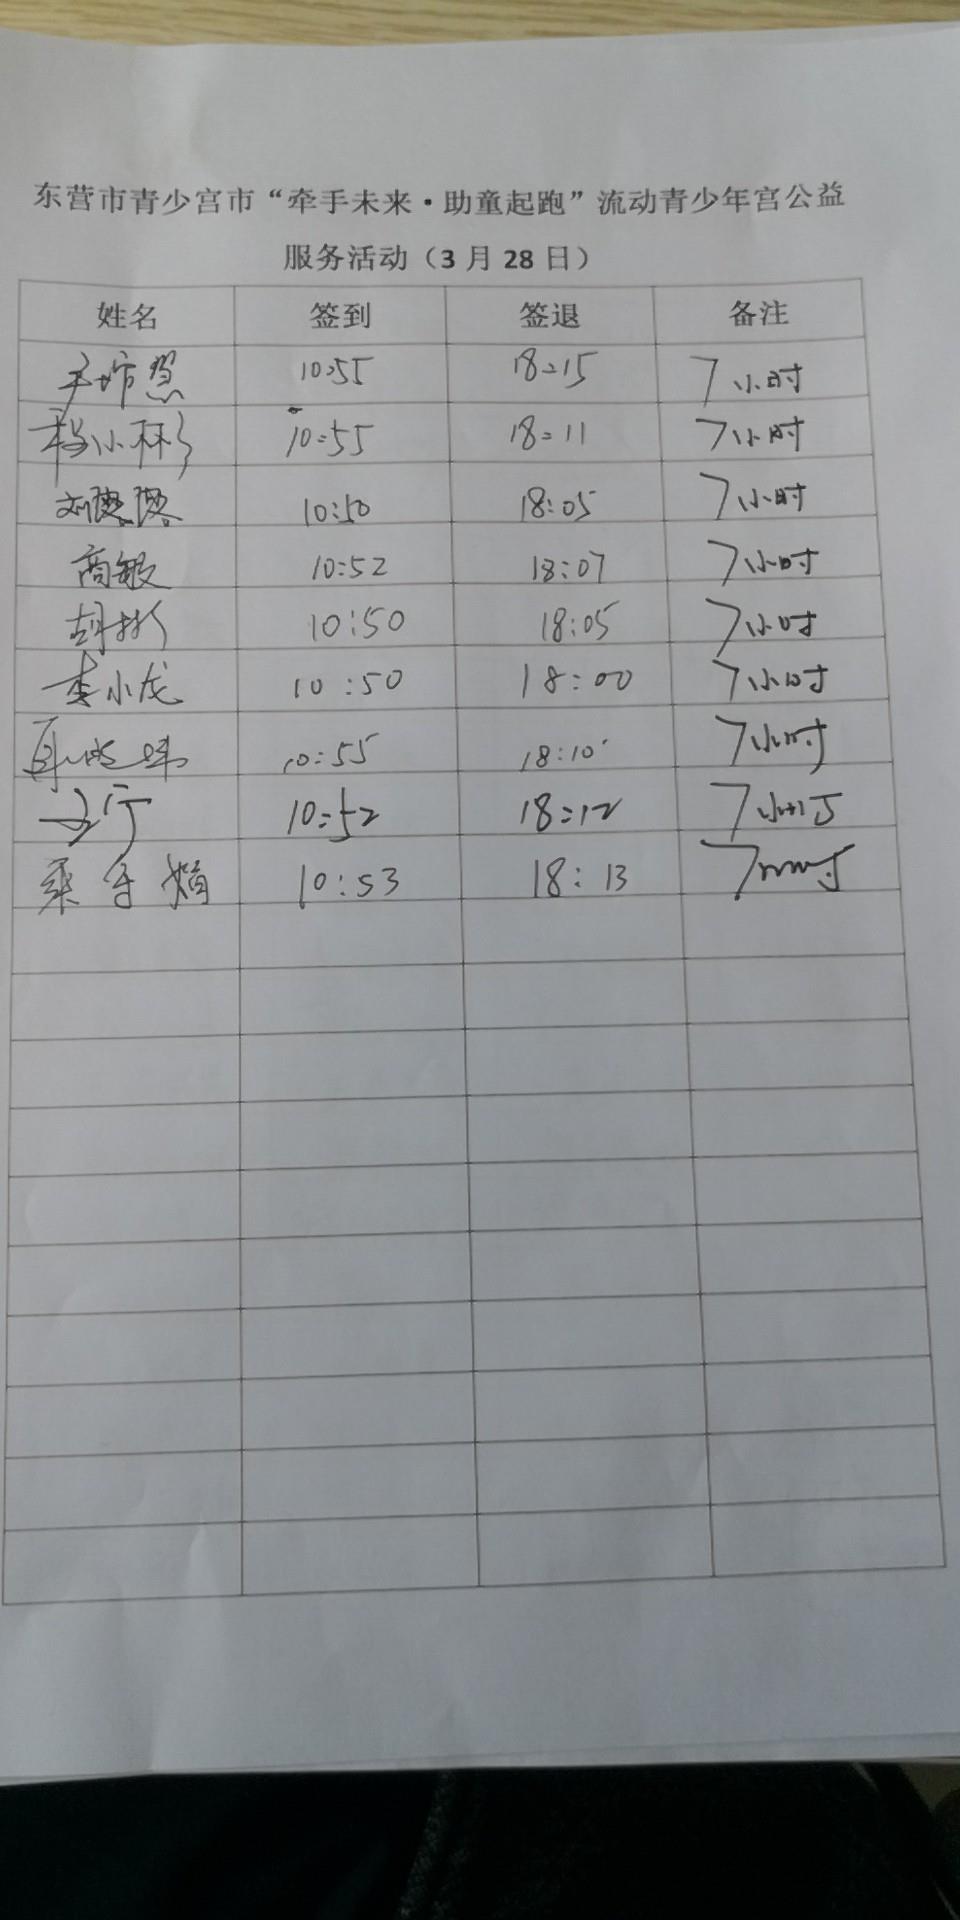 东营市青少宫市“牵手未来·助童起跑”流动青少年宫公益
服务活动（3月28日）
姓名 签到 签退 备注
10:55 18:15 7小时
10:55 18:11 7小时
10:50 18:05 7小时
商敏 10:52 18:07 7小时
胡彬 10:50 18:05 7小时
李小龙 10:50 18:00 7小时
10:55 18:10 7小时
10:52 18:12 7小时
10:53 18:13 7小时